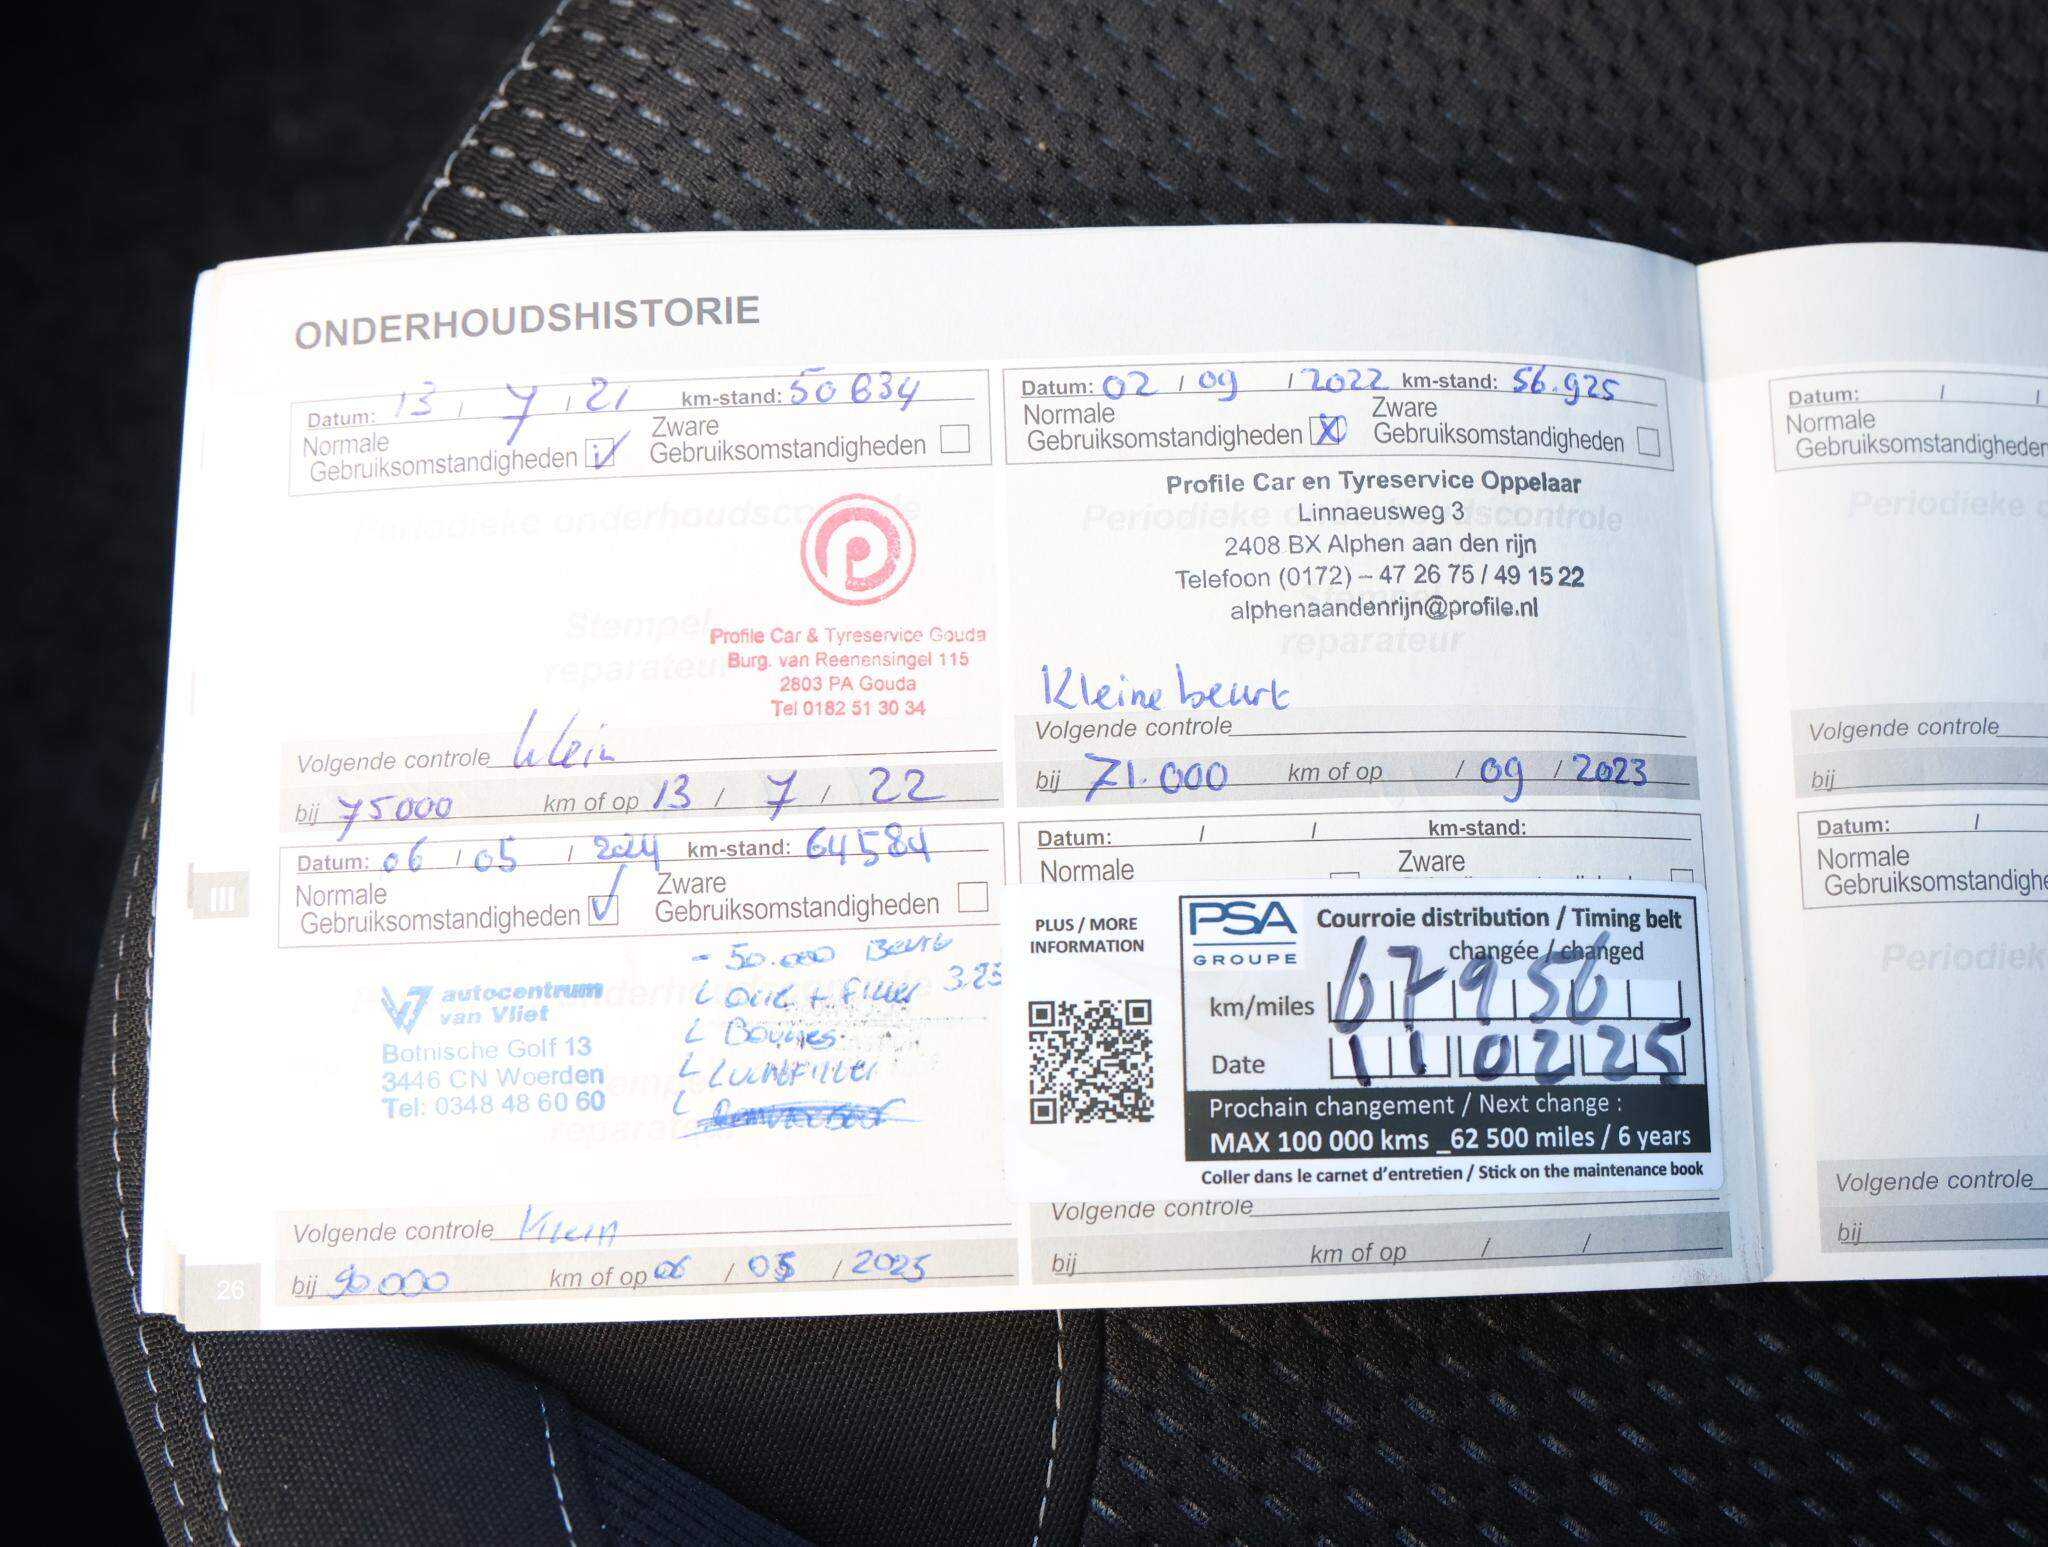 ONDERHOUDSHISTORIE
Datum: 13 / 7 / 21 km-stand: 50634
Normale
Gebruiksomstandigheden
Zware
Gebruiksomstandigheden
Periodieke onderhoudscontrole
Stempel
reparateur
P
Profile Car & Tyreservice Gouda
Burg. van Reenensingel 115
2803 PA Gouda
Tel 0182 51 30 34
Volgende controle klein
bij 75000 km of op 13 / 7 / 22
Datum: 02 / 09 / 2022 km-stand: 56.925
Normale
Gebruiksomstandigheden X
Zware
Gebruiksomstandigheden
Periodieke onderhoudscontrole
Stempel
reparateur
Profile Car en Tyreservice Oppelaar
Linnaeusweg 3
2408 BX Alphen aan den rijn
Telefoon (0172) – 47 26 75 / 49 15 22
alphenaandenrijn@profile.nl
Kleine beurt
Volgende controle
bij 71.000 km of op / 09 / 2023
Datum: 06 / 05 / 2024 km-stand: 64584
Normale
Gebruiksomstandigheden
Zware
Gebruiksomstandigheden
autocentrum
van Vliet
Botnische Golf 13
3446 CN Woerden
Tel: 0348 48 60 60
- 50.000 Beurt
Olie + Filter 3.25
Bougies
Luchtfilter
reparateur
Volgende controle Klein
bij 90.000 km of op 06 / 05 / 2025
Datum: / / km-stand:
Normale
Zware
PLUS / MORE
INFORMATION
PSA
GROUPE
Courroie distribution / Timing belt
changée / changed
km/miles 67956
Date 110225
Prochain changement / Next change :
MAX 100 000 kms _62 500 miles / 6 years
Coller dans le carnet d'entretien / Stick on the maintenance book
Volgende controle
bij km of op / /
III
26
Datum: / /
Normale
Gebruiksomstandigheden
Periodieke
Volgende controle
bij
Datum: /
Normale
Gebruiksomstandighe
Periodiek
Volgende controle
bij